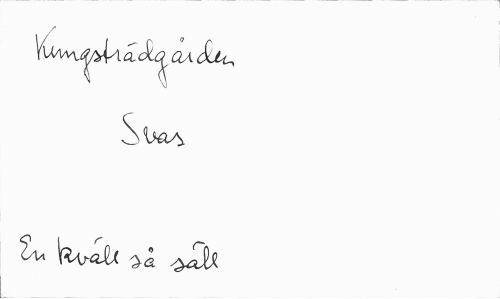 Kungsträdgården
Svas
En kväll så säll